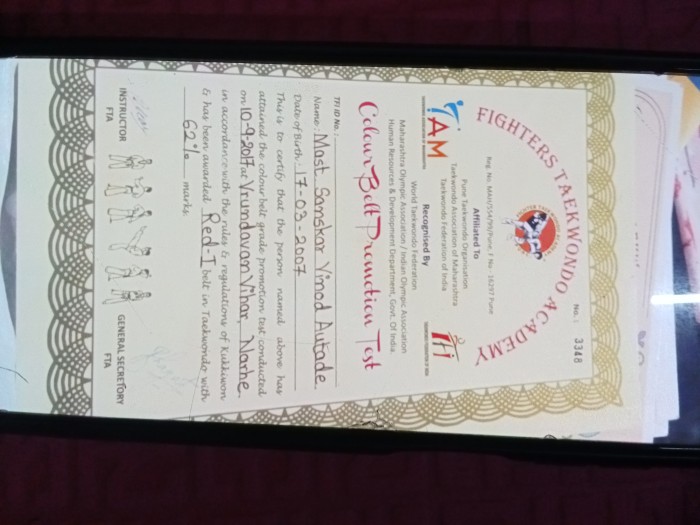 No. : 3348
FIGHTERS TAEKWONDO ACADEMY
Affiliated To
Pune Taekwondo Organisation
Taekwondo Association of Maharashtra
Taekwondo Federation of India
TAM
TFI
Recognised By
World Taekwondo Federation
Maharashtra Olympic Association / Indian Olympic Association
Human Resources & Development Department, Govt. Of India.
Colour Belt Promotion Test
TFI ID No. :
Name: Mast. Sanskar Vinod Autade.
Date of Birth: 17-03-2007
This is to certify that the person named above has
attained the colour belt grade promotion test conducted
on 10-9-2017 at Vrundavan Vihar, Narhe.
in accordance with the rules & regulations of Kukkiwon
& has been awarded Red-I belt in Taekwondo with
62% marks.
INSTRUCTOR
FTA
GENERAL SECRETORY
FTA